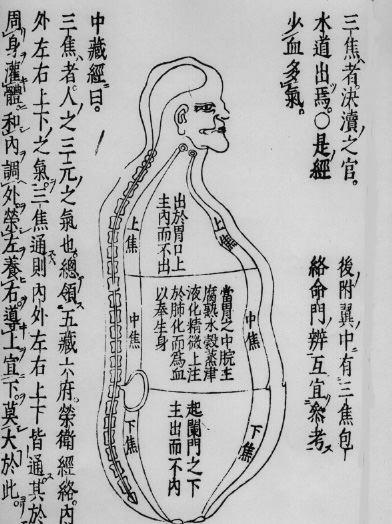 三焦者決瀆之官。
水道出焉。〇是經
少血多氣。
後附翼中有三焦包
絡命門辨互宜參考
上焦
出於胃口上
主內而不出
上焦
中焦
當胃之中脘主
腐熟水穀蒸津
液化精微上注
於肺化而為血
以奉生身
中焦
下焦
起闌門之下
主出而不內
下焦
中藏經曰。
三焦者人之三元之氣也。總領五藏六府。榮衛經絡。內
外左右上下之氣。三焦通則內外左右上下皆通其於
周身灌體和內調外榮左養右導上宜下。莫大於此。